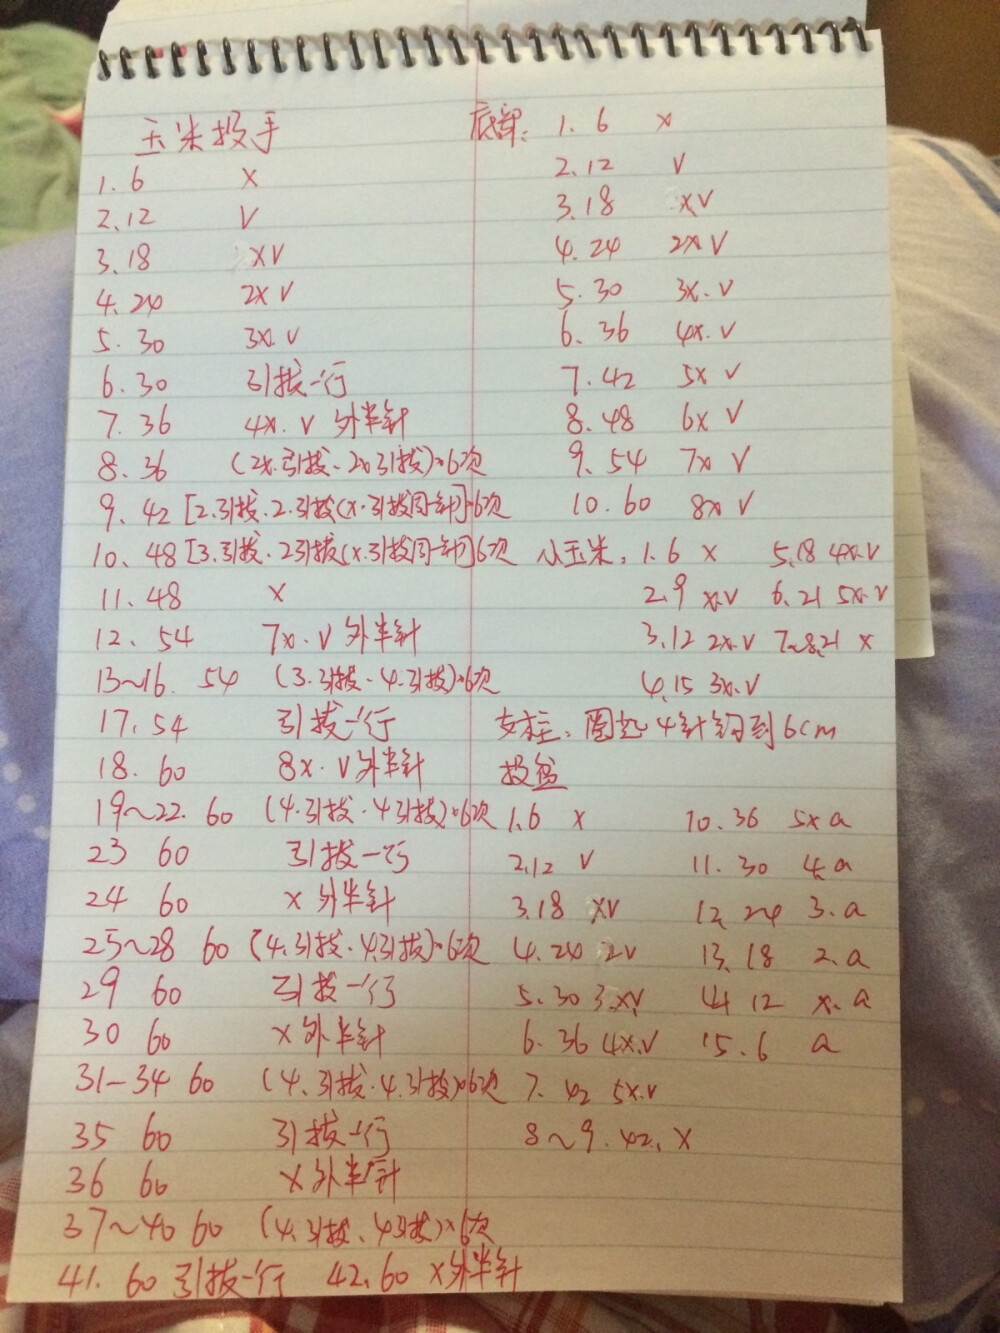 玉米投手
1. 6 x
2. 12 V
3. 18 xV
4. 24 2x V
5. 30 3x. V
6. 30 引拔一行
7. 36 4x. V 外半针
8. 36 (2x. 引拔. 2x引拔)×6次
9. 42 [2.引拔.2.引拔(x.引拔同一针)]×6次
10. 48 [3.引拔.2引拔(x.引拔同一针)]6次
11. 48 x
12. 54 7x. V 外半针
13~16. 54 (3.引拔.4.引拔)×6次
17. 54 引拔一行
18. 60 8x. V外半针
19~22. 60 (4.引拔.4引拔)×6次
23 60 引拔一行
24 60 x 外半针
25~28 60 (4.引拔.4引拔)×6次
29 60 引拔一行
30 60 x外半针
31-34 60 (4.引拔.4.引拔)×6次
35 60 引拔一行
36 60 x外半针
37~40 60 (4.引拔、4引拔)×6次
41. 60 引拔一行 42. 60 x外半针
底部: 1. 6 x
2. 12 V
3. 18 xV
4. 24 2x V
5. 30 3x. V
6. 36 4x. V
7. 42 5x V
8. 48 6x V
9. 54 7x V
10. 60 8x V
小玉米: 1. 6 x 5. 18 4x. V
2. 9 x.V 6. 21 5x. V
3. 12 2x. V 7~8. 21 x
4. 15 3x. V
支柱: 圈起4针钩到6cm
投盆
1. 6 x 10. 36 5x a
2. 12 V 11. 30 4. a
3. 18 xV 12. 24 3. a
4. 24 2V 13. 18 2. a
5. 30 3.xV 14 12 x. a
6. 36 4x.V 15. 6 a
7. 42 5x.V
8~9. 42. x